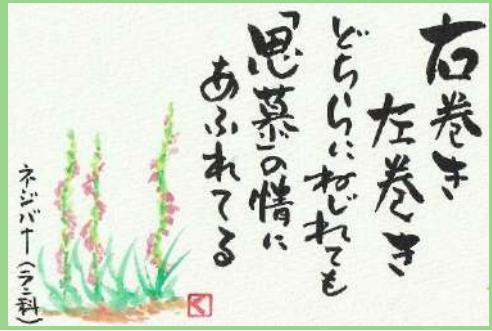 右巻き
左巻き
どちらにねじれても
「思慕」の情に
あふれてる
ネジバナ(ラン科)
く